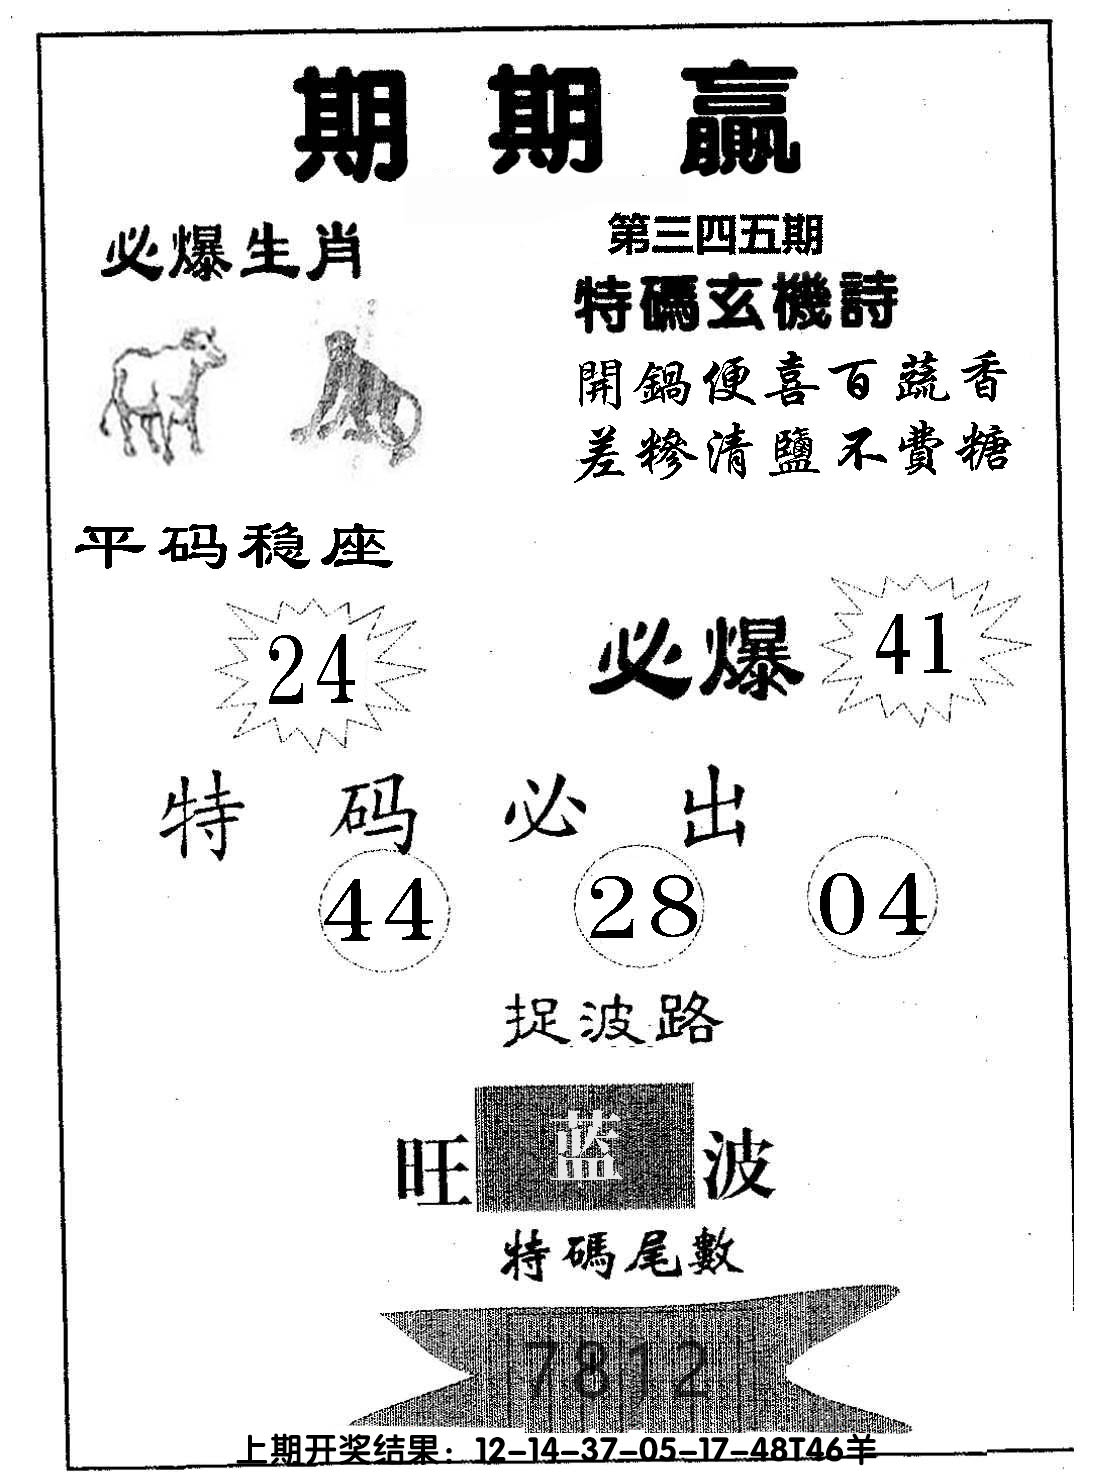 期期赢
必爆生肖
第三四五期
特碼玄機詩
開鍋便喜百蔬香
差糝清鹽不費糖
平码稳座
24
必爆
41
特码必出
44 28 04
捉波路
旺蓝波
特碼尾數
7812
上期开奖结果：12-14-37-05-17-48T46羊